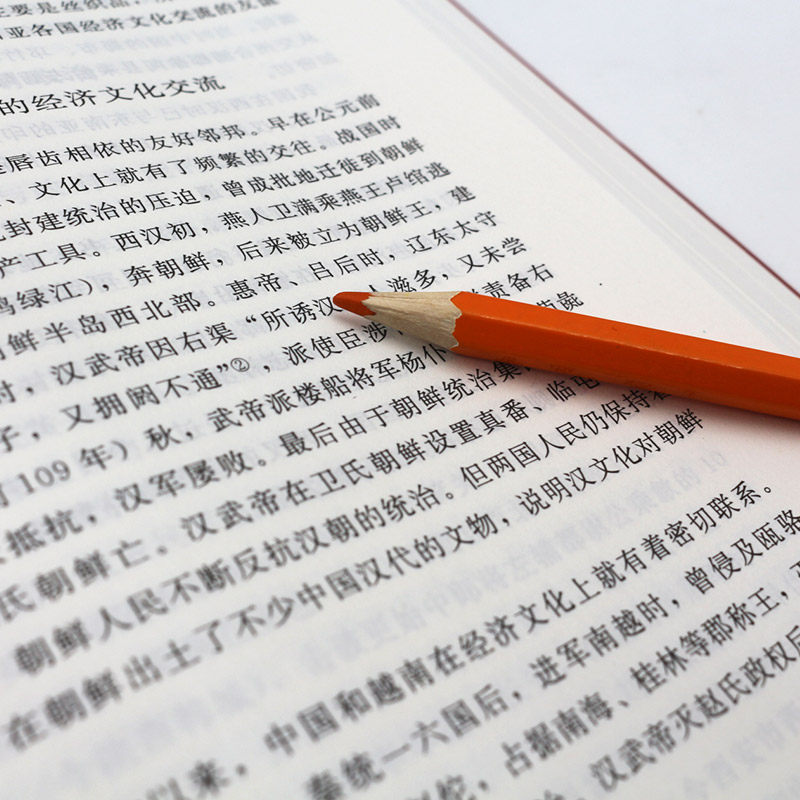 主要是丝织品,
亚各国经济文化交流的友谊
的经济文化交流
唇齿相依的友好邻邦。早在公元前
、文化上就有了频繁的交往。战国时
封建统治的压迫,曾成批地迁徙到朝鲜
产工具。西汉初,燕人卫满乘燕王卢绾逃
鸭绿江),奔朝鲜,后来被立为朝鲜王,建
朝鲜半岛西北部。惠帝、吕后时,辽东太守
时,汉武帝因右渠“所诱汉 人滋多,又未尝
子,又拥阏不通”②,派使臣涉 责备右
109年)秋,武帝派楼船将军杨仆
抵抗,汉军屡败。最后由于朝鲜统治集
氏朝鲜亡。汉武帝在卫氏朝鲜设置真番、临屯
朝鲜人民不断反抗汉朝的统治。但两国人民仍保持着
在朝鲜出土了不少中国汉代的文物,说明汉文化对朝鲜
以来,中国和越南在经济文化上就有着密切联系。
秦统一六国后,进军南越时,曾侵及瓯骆
佗,占据南海、桂林等郡称王,
汉武帝灭赵氏政权后